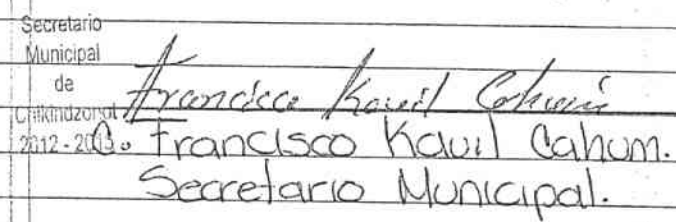 Secretario
Municipal
de
Chikindzonot
2012 - 2015
Francisco Kauil Cahum
C. Francisco Kauil Cahum.
Secretario Municipal.